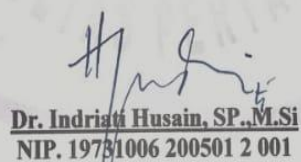 Dr. Indriati Husain, SP.,M.Si
NIP. 19731006 200501 2 001